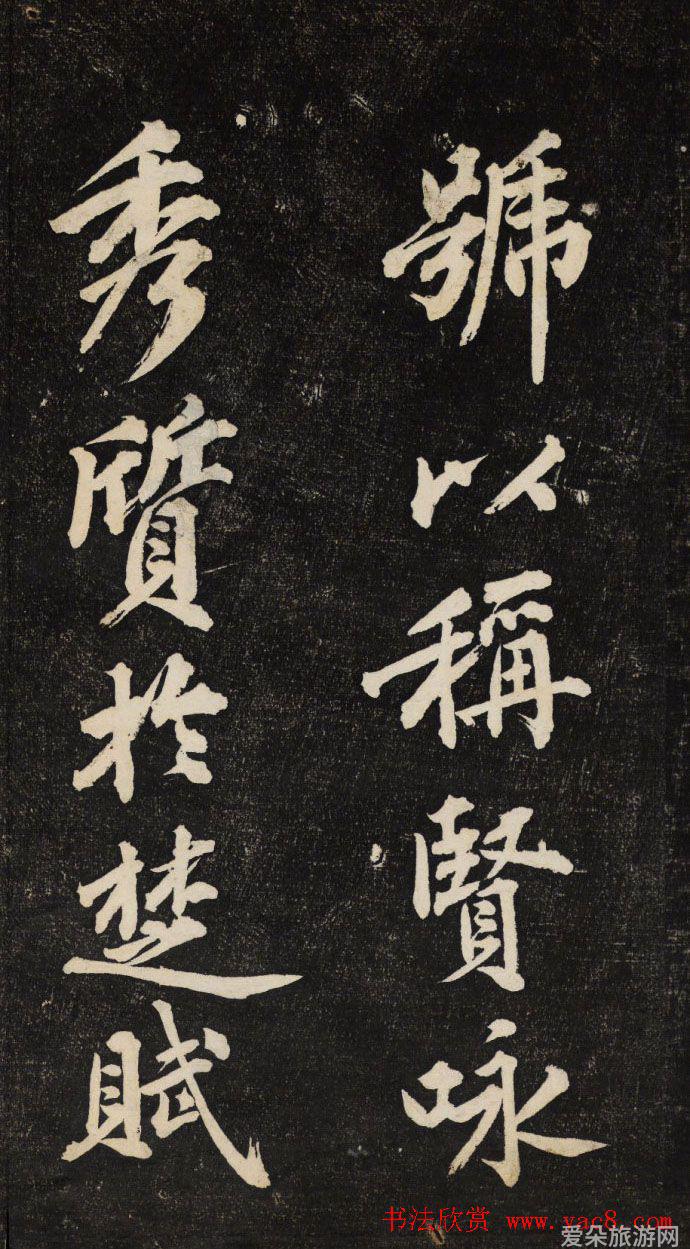 號以稱賢咏
秀質於楚賦
书法欣赏 www.yac8.com
爱朵旅游网